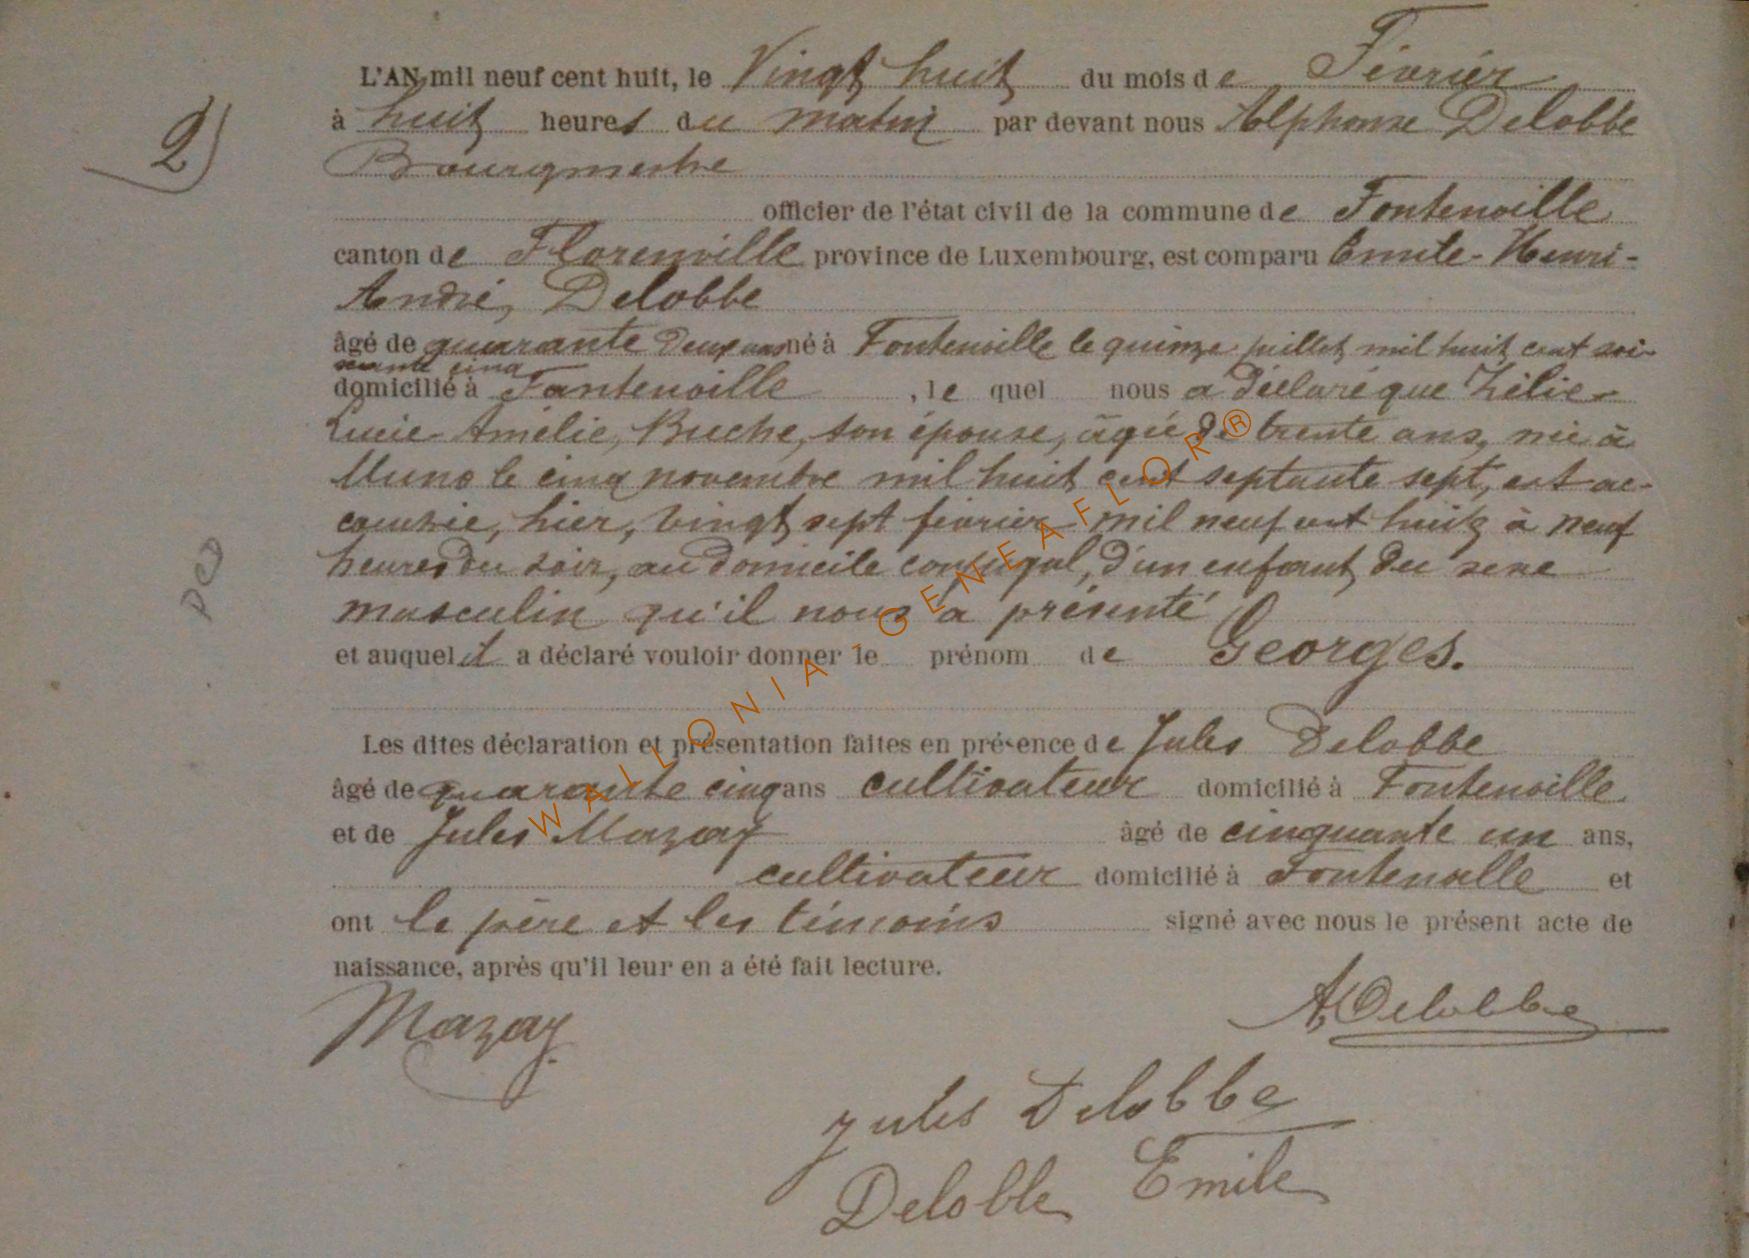 2)
L'AN mil neuf cent huit, le Vingt huit du mois de Février
à huit heures du matin par devant nous Alphonse Delobbe
Bourgmestre
officier de l'état civil de la commune de Fontenoille
canton de Florenville province de Luxembourg, est comparu Emile-Henri-
André, Delobbe
âgé de quarante deux ans né à Fontenoille le quinze juillet mil huit cent soi-
xante cinq
domicilié à Fontenoille, le quel nous a déclaré que Zélie-
Lucie-Amélie, Buche, son épouse, âgée de trente ans, née à
Muno le cinq novembre mil huit cent septante sept, est ac-
couchée, hier, vingt sept février mil neuf cent huit, à neuf
heures du soir, au domicile conjugal, d'un enfant du sexe
masculin qu'il nous a présenté
et auquel il a déclaré vouloir donner le prénom de Georges.
Les dites déclaration et présentation faites en présence de Jules Delobbe
âgé de quarante cinq ans cultivateur domicilié à Fontenoille
et de Jules Mazay âgé de cinquante un ans,
cultivateur domicilié à Fontenoille et
ont le père et les témoins signé avec nous le présent acte de
naissance, après qu'il leur en a été fait lecture.
Mazay
A Delobbe
Jules Delobbe
Delobbe Emile
WALLONIA-GENEAFLOR®